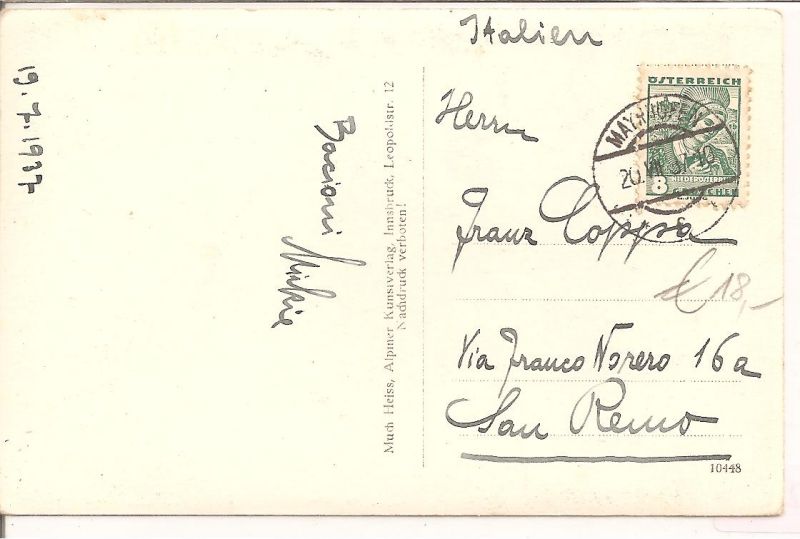 19.7.1937
Bacioni
Mukie
Much Heiss, Alpiner Kunstverlag, Innsbruck, Leopoldstr. 12
Nachdruck verboten!
Italien
ÖSTERREICH
MAYRHOFEN
20.VII.37.10
NIEDERÖSTERREICH
8 GROSCHEN
Herrn
Franz Coppa
€ 18,-
Via Franco Norero 16a
San Remo
10448